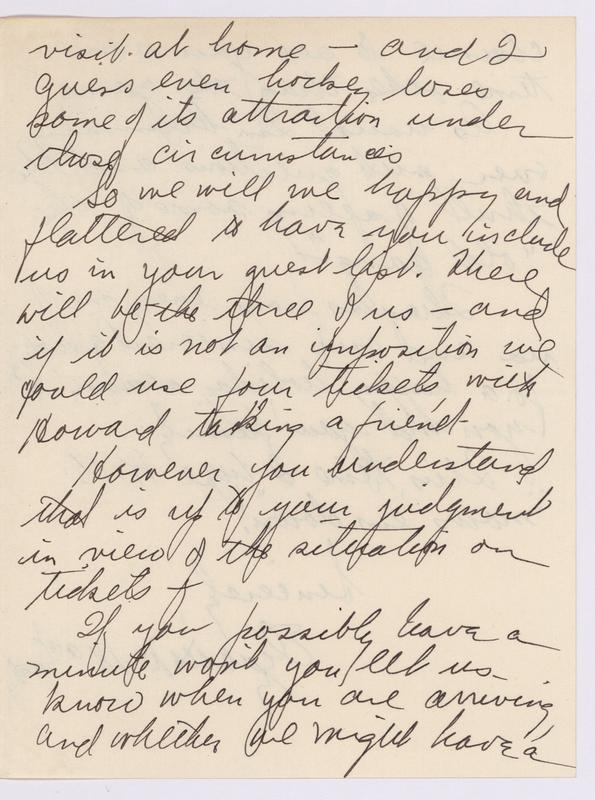 visit. at home – and I
guess even hockey loses
some of its attraction under
those circumstances
So we will we happy and
flattered to have you include
us in your guest list. There
will be the three of us – and
if it is not an imposition we
could use four tickets with
Howard taking a friend.
However you understand
that is up to your judgment
in view of the situation on
tickets –
If you possibly have a
minute won't you let us
know when you are arriving
and whether we might have a